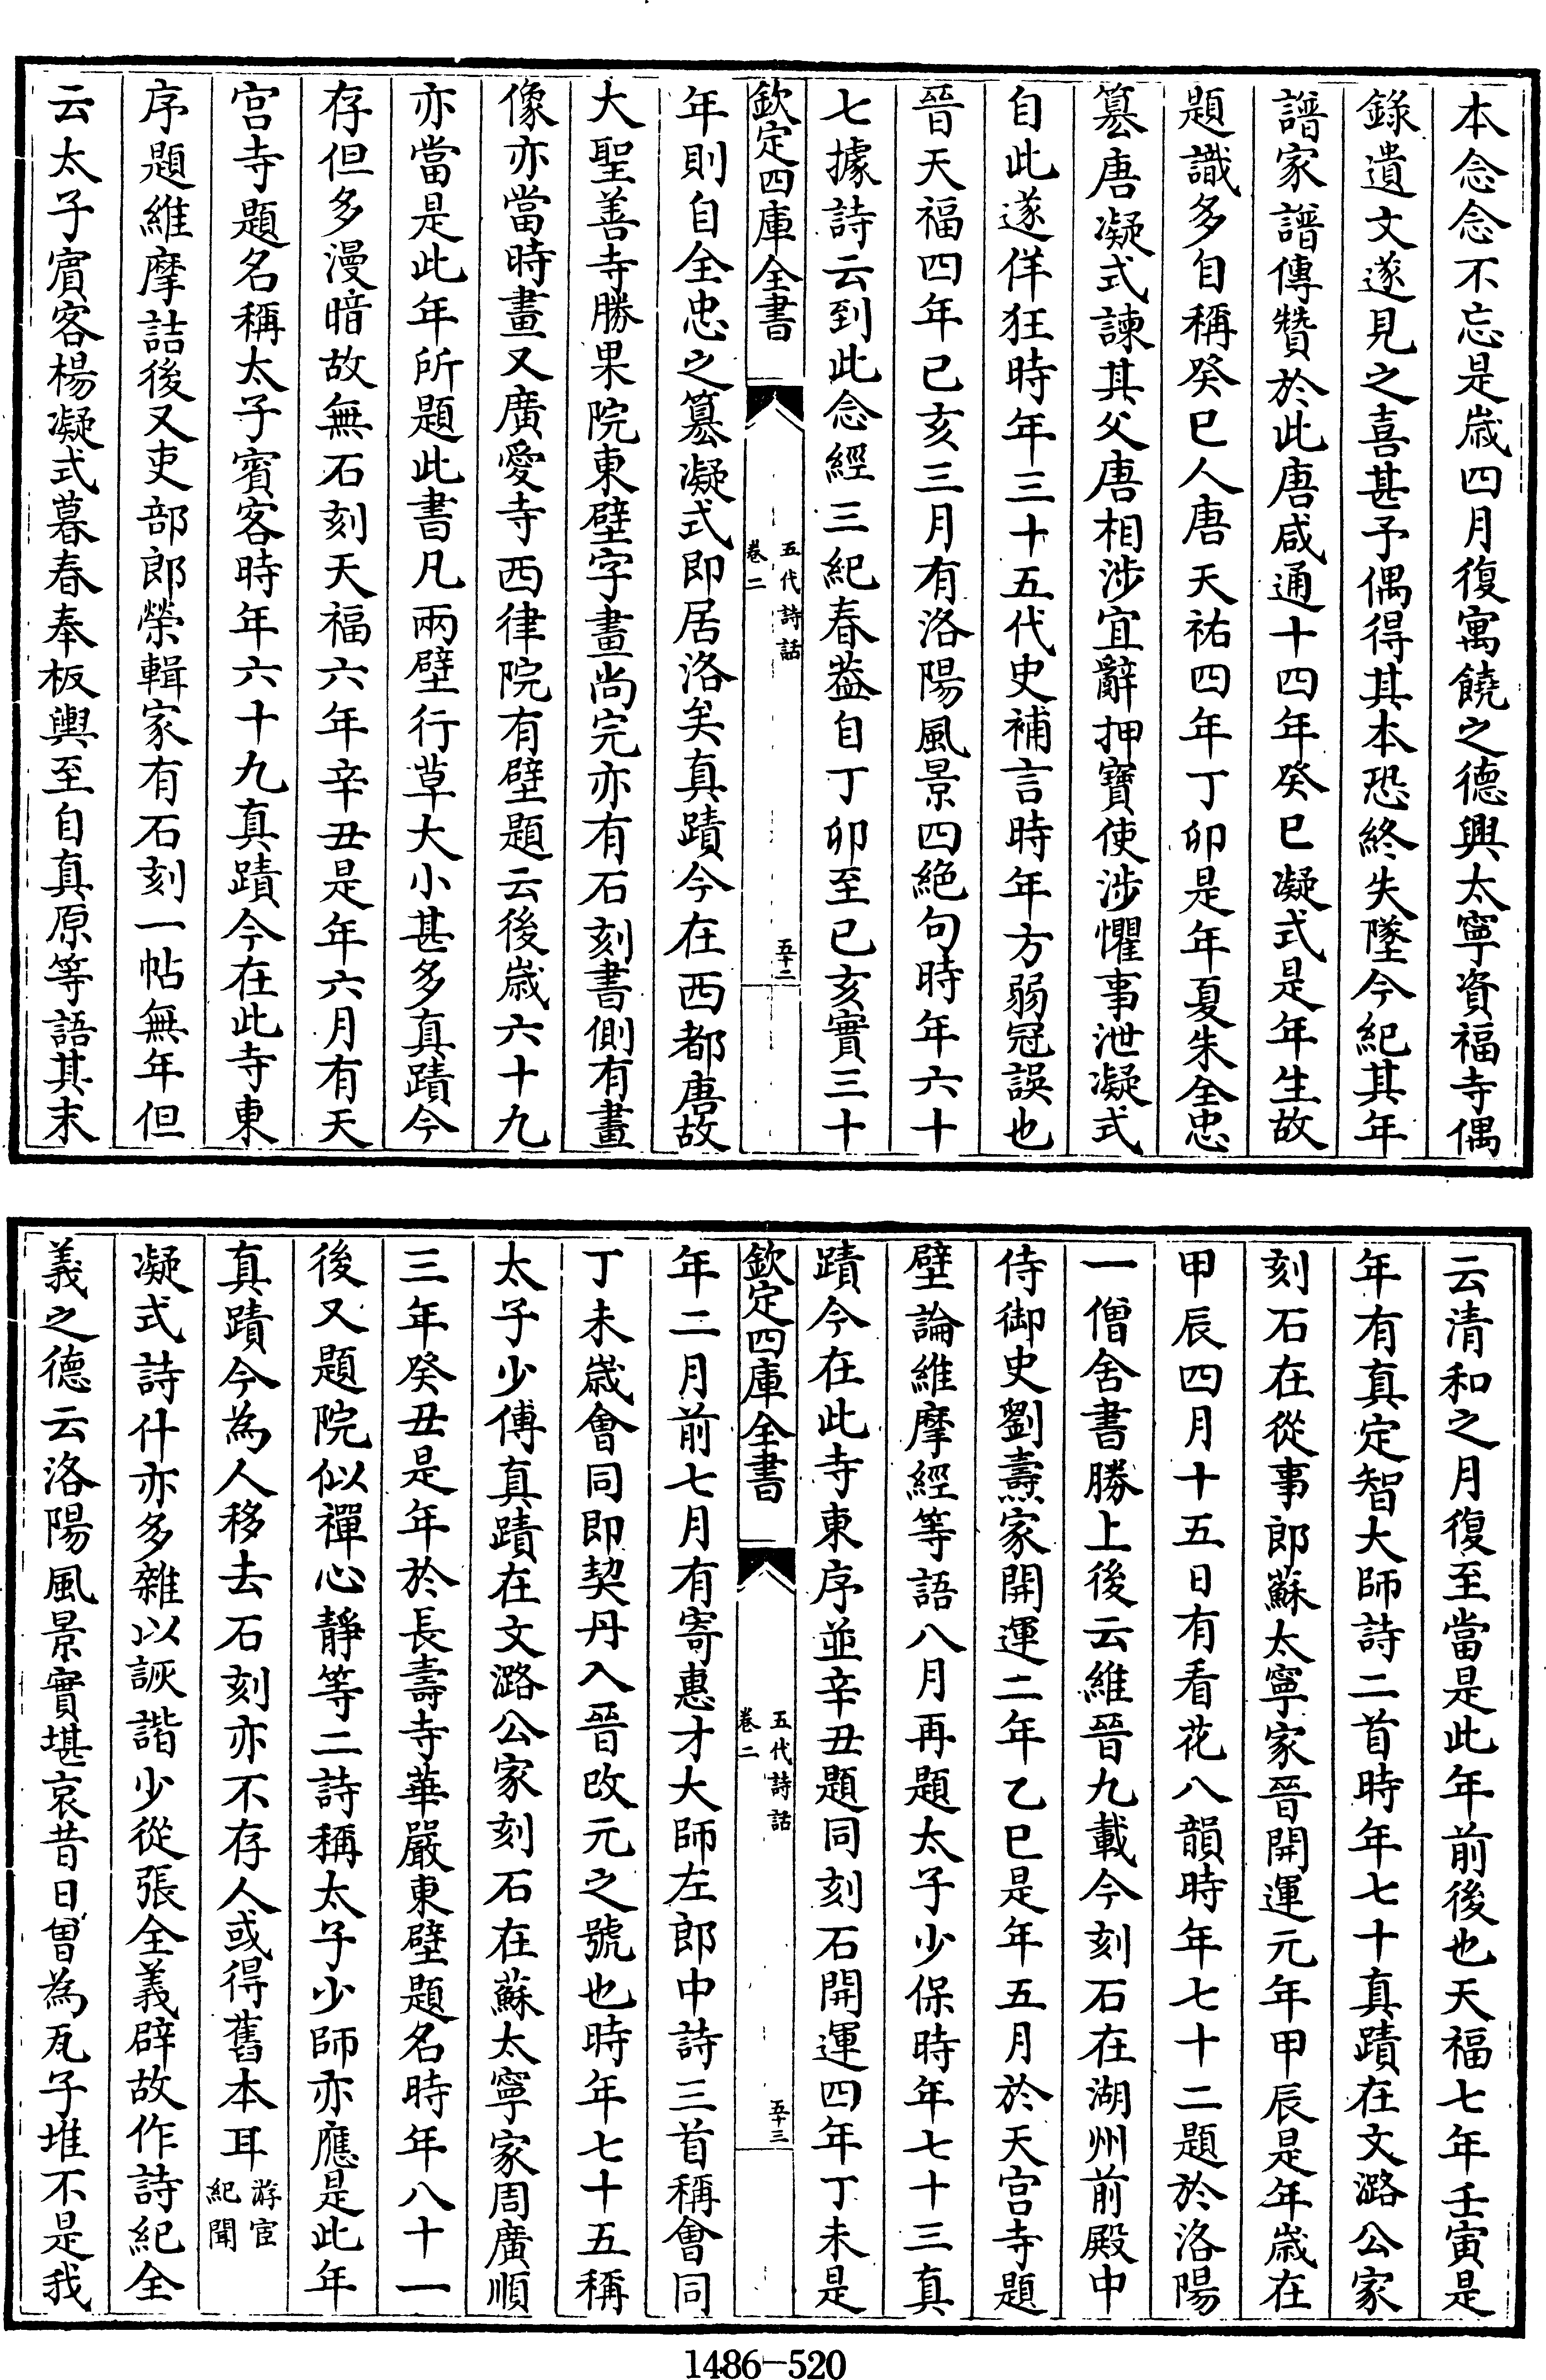 本念念不忘是歳四月復寓饒之德興太寧資福寺偶
錄遺文遂見之喜甚予偶得其本恐終失墜今紀其年
譜家譜傳贊於此唐咸通十四年癸巳凝式是年生故
題識多自稱癸巳人唐天祐四年丁卯是年夏朱全忠
簒唐凝式諫其父唐相涉宜辭押寶使涉懼事泄凝式
自此遂佯狂時年三十五代史補言時年方弱冠誤也
晉天福四年己亥三月有洛陽風景四絶句時年六十
七據詩云到此念經三紀春葢自丁卯至已亥實三十
欽定四庫全書
五代詩話
卷二
五十二
年則自全忠之簒凝式即居洛矣真蹟今在西都唐故
大聖善寺勝果院東壁字畫尚完亦有石刻書側有畫
像亦當時畫又廣愛寺西律院有壁題云後歳六十九
亦當是此年所題此書凡兩壁行草大小甚多真蹟今
存但多漫暗故無石刻天福六年辛丑是年六月有天
宫寺題名稱太子賓客時年六十九真蹟今在此寺東
序題維摩詰後又吏部郎榮輯家有石刻一帖無年但
云太子賓客楊凝式暮春奉板輿至自真原等語其末
云清和之月復至當是此年前後也天福七年壬寅是
年有真定智大師詩二首時年七十真蹟在文潞公家
刻石在從事郎蘇太寧家晉開運元年甲辰是年歳在
甲辰四月十五日有看花八韻時年七十二題於洛陽
一僧舍書勝上後云維晉九載今刻石在湖州前殿中
侍御史劉燾家開運二年乙巳是年五月於天宫寺題
壁論維摩經等語八月再題太子少保時年七十三真
蹟今在此寺東序並辛丑題同刻石開運四年丁未是
欽定四庫全書
五代詩話
卷二
五十三
年二月前七月有寄惠才大師左郎中詩三首稱會同
丁未歳會同即契丹入晉改元之號也時年七十五稱
太子少傅真蹟在文潞公家刻石在蘇太寧家周廣順
三年癸丑是年於長壽寺華嚴東壁題名時年八十一
後又題院似禪心靜等二詩稱太子少師亦應是此年
真蹟今為人移去石刻亦不存人或得舊本耳游宦紀聞
凝式詩什亦多雜以詼諧少從張全義辟故作詩紀全
義之德云洛陽風景實堪哀昔日曾為瓦子堆不是我
1486-520